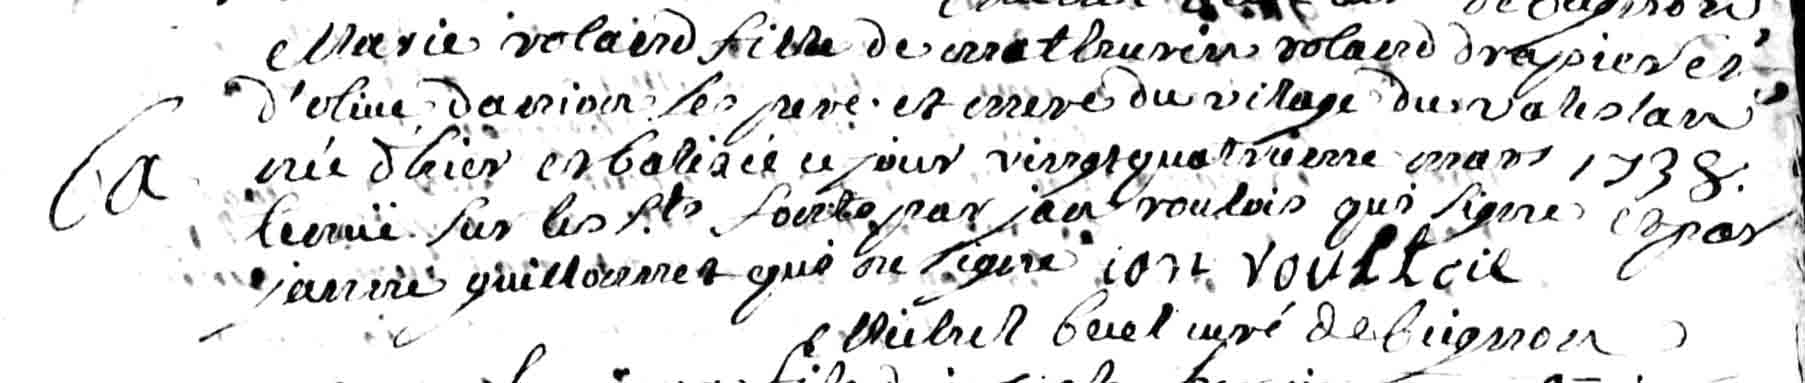 de buignon
Marie volaird fille de mathurin volaird drapier et
d'olive danion ses pere et mere du vilage du valeslan
née d'hier et batisée ce jour vingt quatrieme mars 1738.
tenuë sur les sts fonts par jan roulois qui signe et par
janne guilloumet qui ne signe ion Voulloie
Michel buel curé de buignon